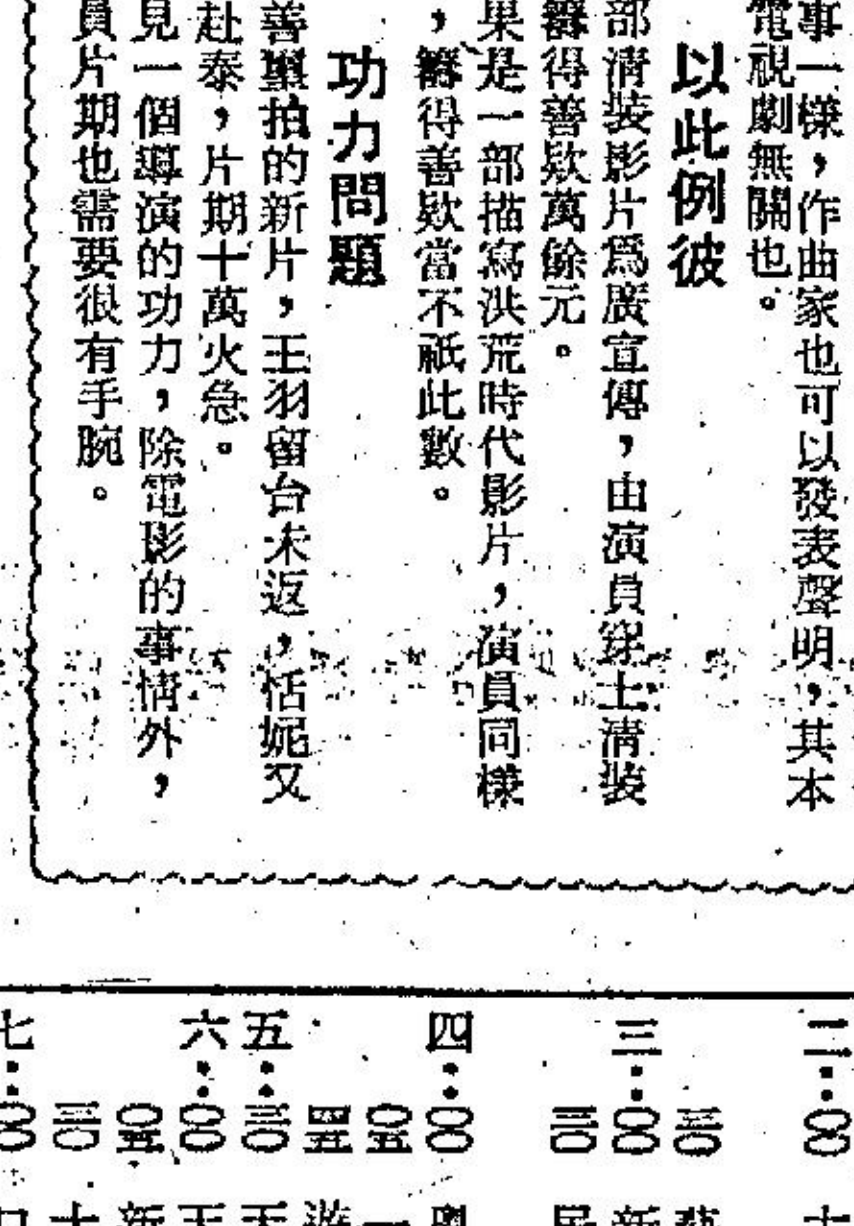 事一樣，作曲家也可以發表聲明，其本
電視劇無關也。
以此例彼
部清裝影片爲廣宣傳，由演員穿上清裝
籌得善欵萬餘元。
果是一部描寫洪荒時代影片，演員同樣
，籌得善欵當不祇此數。
功力問題
善導拍的新片，王羽留台未返，恬妮又
赴泰，片期十萬火急。
見一個導演的功力，除電影的事情外，
員片期也需要很有手腕。
二：〇〇
三〇
三：〇〇
三〇
四：〇〇
〇五
四五
五：三〇
六：〇〇
〇五
三〇
七：〇〇